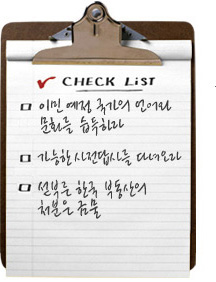 ✓ CHECK LIST
□ 이민 예정 국가의 언어와
문화를 습득하라
□ 가능한 사전답사를 다녀오라
□ 섣부른 한국 부동산의
처분은 금물